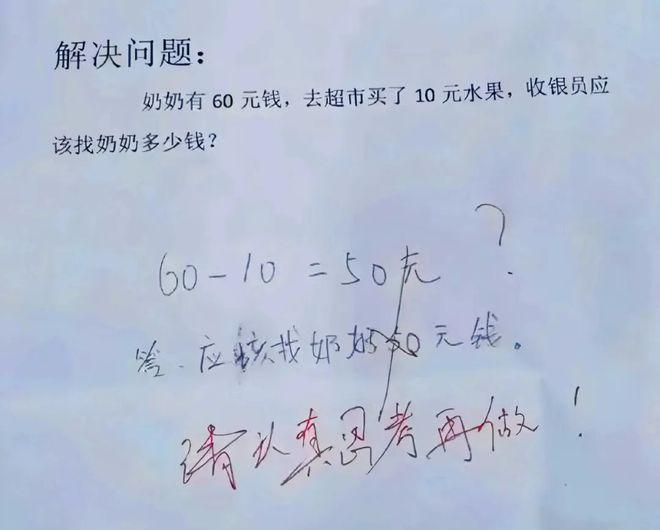 解决问题:
奶奶有 60 元钱，去超市买了 10 元水果，收银员应
该找奶奶多少钱?
?
60-10=50元
答、应该找奶奶50元钱。
请认真思考再做!